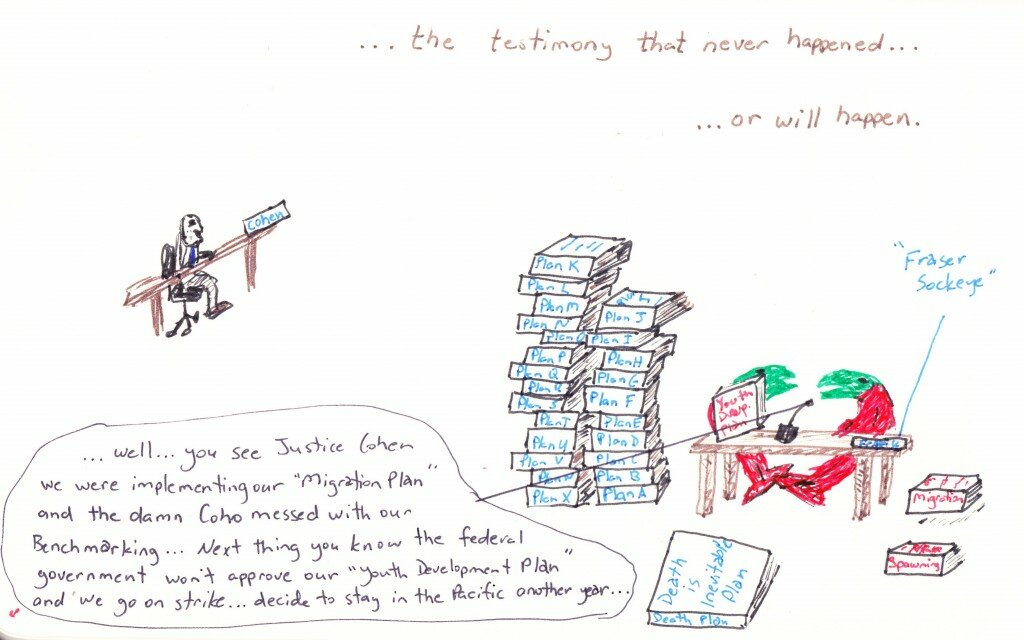 ... the testimony that never happened...
...or will happen.
cohen
"Fraser
Sockeye"
Plan K
Plan L
Plan M
Plan N
Plan P
Plan Q
Plan R
Plan S
Plan T
Plan U
Plan V
Plan W
Plan X
Plan J
Plan I
Plan H
Plan G
Plan F
Plan E
Plan D
Plan C
Plan B
Plan A
Youth
Devp.
Plan
Migration
Spawning
Death
is
Inevitable
Plan
Death Plan
... well... you see Justice Cohen
we were implementing our "Migration Plan"
and the damn Coho messed with our
Benchmarking... Next thing you know the federal
government won't approve our "Youth Development Plan"
and we go on strike... decide to stay in the Pacific another year...